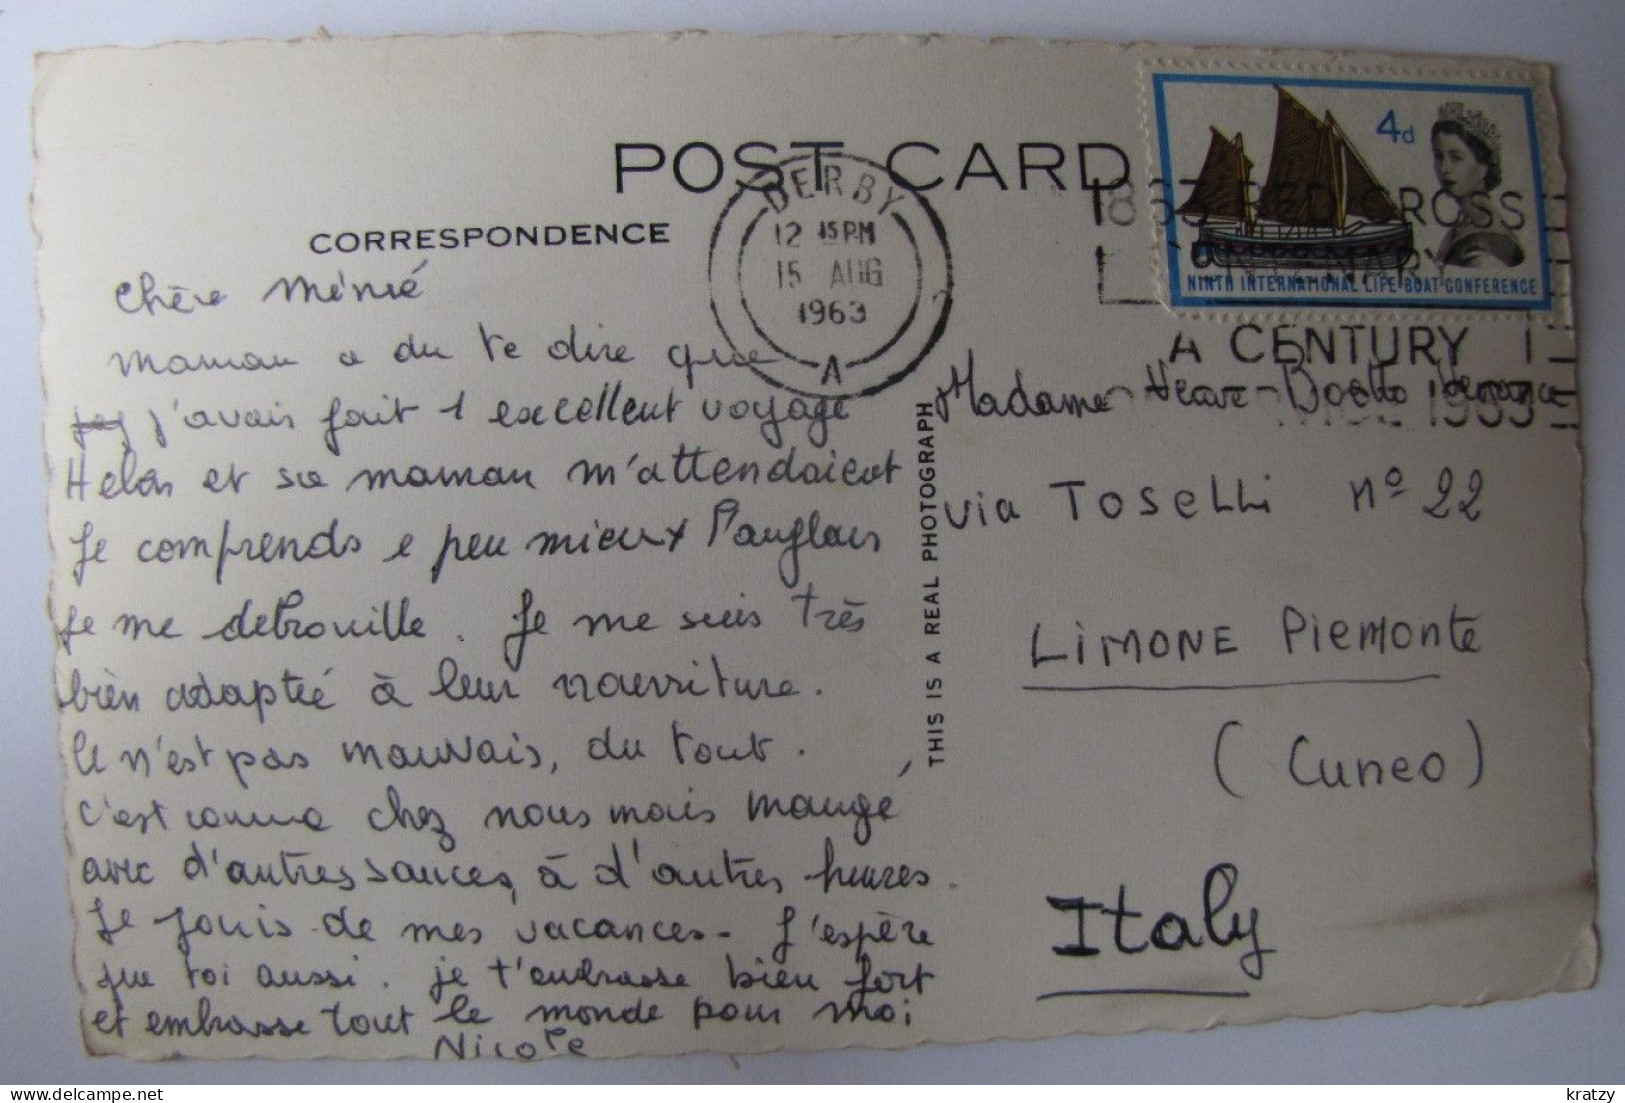 POST CARD
CORRESPONDENCE
DERBY
12 15 PM
15 AUG
1963
A
4d
NINTH INTERNATIONAL LIFE-BOAT CONFERENCE
1863 RED CROSS
CENTENARY
A CENTURY
1963
THIS IS A REAL PHOTOGRAPH
Chère Mémé
Maman a du te dire que
j'avais fait 1 excellent voyage
Helen et sa maman m'attendaient
Je comprends 1 peu mieux l'anglais
Je me debrouille. Je me suis très
bien adaptée à leur nourriture.
Ce n'est pas mauvais, du tout.
C'est comme chez nous mais mangé
avec d'autres sauces, à d'autres heures.
Je jouis de mes vacances. J'espère
que toi aussi. je t'embrasse bien fort
et embrasse tout le monde pour moi
Nicole
Madame
via TOSELLI nº 22
LIMONE PIEMONTE
(Cuneo)
Italy
kratzy